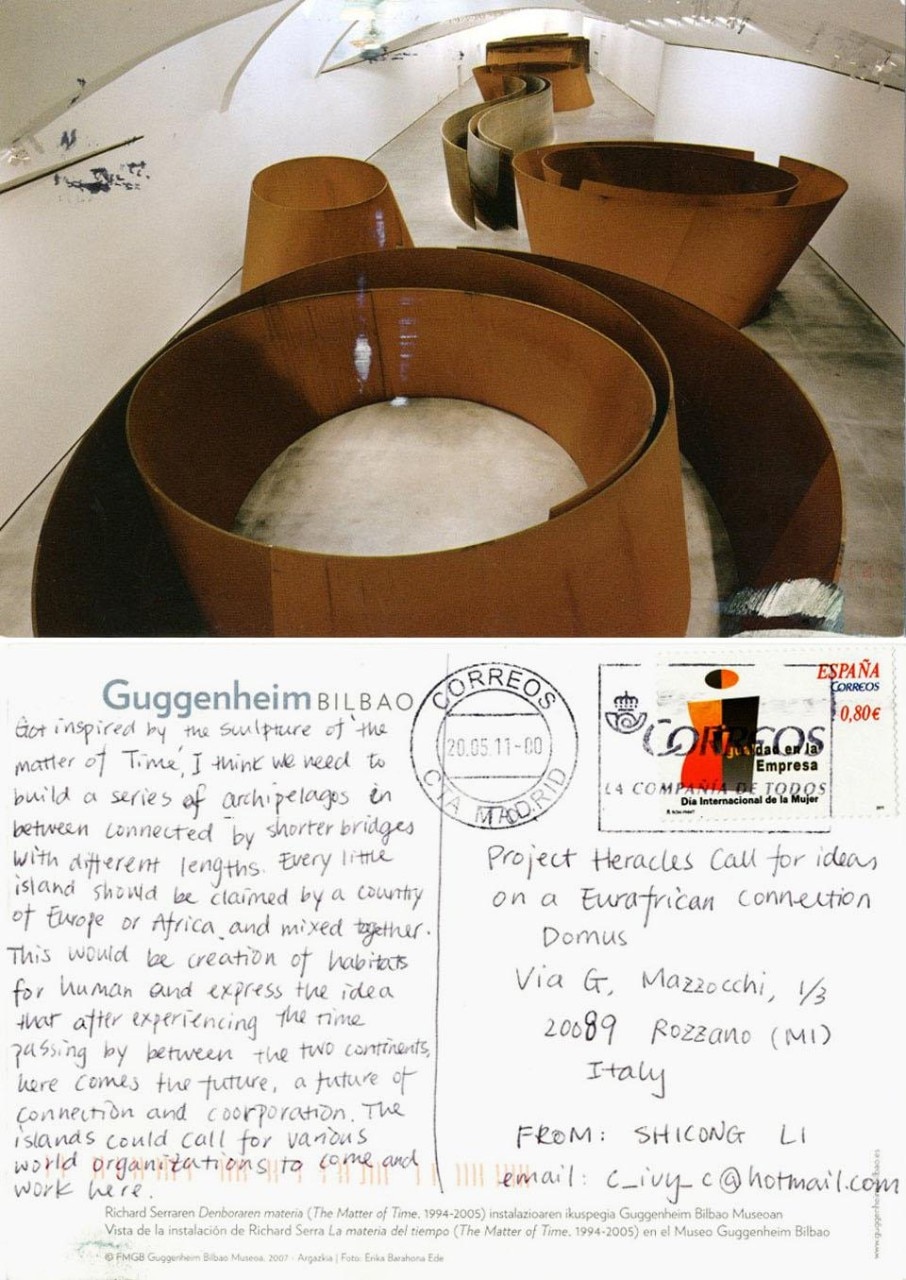 Guggenheim BILBAO
Got inspired by the sculpture of 'the
matter of Time', I think we need to
build a series of archipelagos in
between connected by shorter bridges
with different lengths. Every little
island should be claimed by a country
of Europe or Africa and mixed together.
This would be creation of habitats
for human and express the idea
that after experiencing the time
passing by between the two continents,
here comes the future, a future of
connection and coorporation. The
islands could call for various
world organizations to come and
work here.
CORREOS
20.05.11-00
CTA MADRID
CORREOS
LA COMPAÑÍA DE TODOS
ESPAÑA
CORREOS
0,80€
Igualdad en la
Empresa
Día Internacional de la Mujer
Project Heracles Call for ideas
on a Eurafrican connection
Domus
Via G. Mazzocchi, 1/3
20089 Rozzano (MI)
Italy
FROM: SHICONG LI
email: c_ivy_c@hotmail.com
Richard Serraren Denboraren materia (The Matter of Time, 1994-2005) instalazioaren ikuspegia Guggenheim Bilbao Museoan
Vista de la instalación de Richard Serra La materia del tiempo (The Matter of Time, 1994-2005) en el Museo Guggenheim Bilbao
© FMGB Guggenheim Bilbao Museoa, 2007 - Argazkia | Foto: Erika Barahona Ede
www.guggenheim-bilbao.es